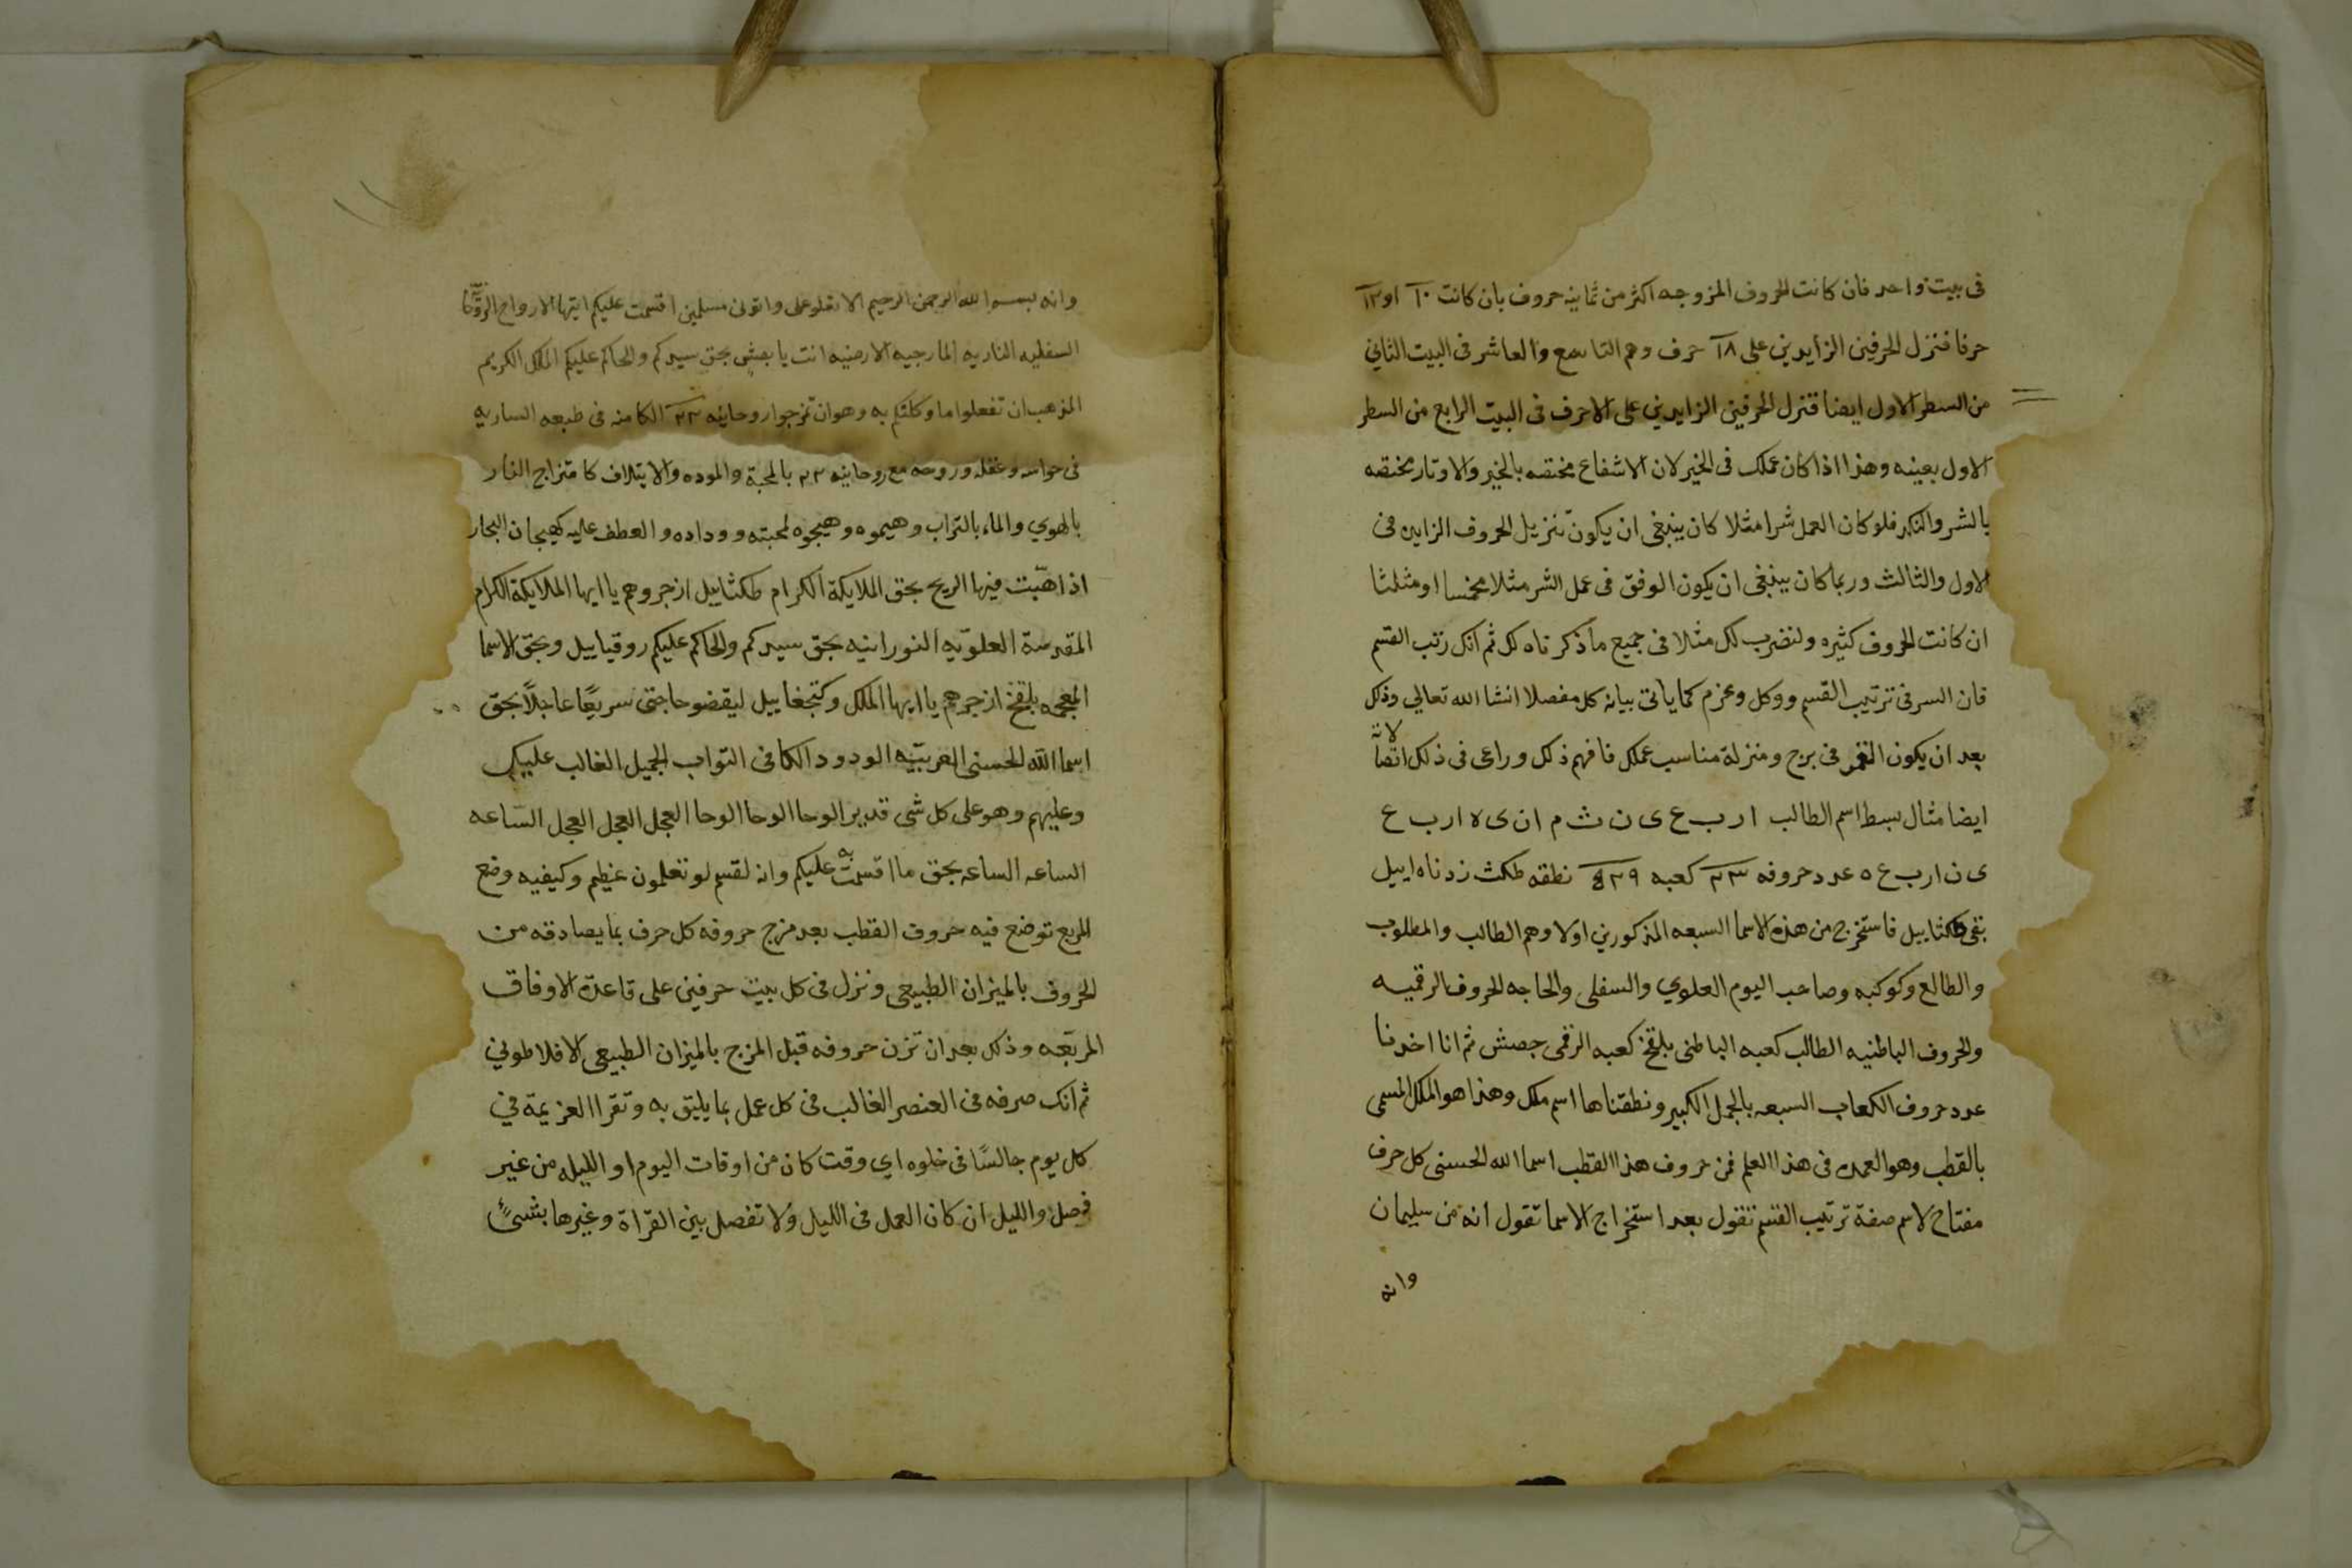 فى بيت واحد فان كانت الحروف المزوجه اكثر من ثمانية حروف بان كانت ١٠ او ١٢
حرفا فتنزل الحرفين الزايدين على ٨ حرف وهم التاسع والعاشر فى البيت الثانى
من السطر الاول ايضا فتنزل الحرفين الزايدين على الاحرف فى البيت الرابع من السطر
الاول بعينه وهذا اذا كان عملك فى الخير لان الاشفاع مختصه بالخير والاوتار مختصه
بالشر فلو كان العمل شرا مثلا كان ينبغى ان يكون تنزيل الحروف الزايده فى
الاول والثالث وربما كان ينبغى ان يكون الوفق فى عمل الشر مثلا مخمسا او مثلثا
ان كانت الحروف كثيره ولنضرب لك مثلا فى جميع ما ذكرناه لك ثم انك رتب القسم
فان السر فى ترتيب القسم ووكل وعزم كما ياتى بيانه كل مفصلا انشا الله تعالي وذلك
بعد ان يكون القمر فى برج ومنزلة مناسب عملك فافهم ذلك وراعى فى ذلك
ايضا مثال بسط اسم الطالب ا ر ب ع ى ن ث م ا ن ى ه ا ر ب ع
ى ن ا ر ب ع ه عدد حروفه ٢٣ كعبه ٥٢٩ نطقه طكث زدناه اييل
بقى طكثاييل فاستخرج من هذه الاسما السبعه المذكورين اولا وهم الطالب والمطلوب
والطالع وكوكبه وصاحب اليوم العلوي والسفلى والحاجه الحروف الرقميه
والحروف الباطنيه الطالب كعبه الباطنى بلقخ كعبه الرقمى جصش ثم انا اخدنا
عدد حروف الكعاب السبعه بالجمل الكبير ونطقناها اسم ملك وهذا هو الملك المسمى
بالقطب وهو العمده فى هذا العلم فمن حروف هذا القطب اسما الله الحسنى كل حرف
مفتاح لاسم صفة ترتيب القسم تقول بعد استخراج الاسما تقول انه من سليمان
وانه
وانه بسم الله الرحمن الرحيم الا تعلو على واتونى مسلمين اقسمت عليكم ايتها الارواح
السفليه الناريه المارجيه الارضيه انت يا بحق سيدكم والحاكم عليكم الملك الكريم
المذهب ان تفعلوا ما وكلتكم به وهو ان تمزجوا روحانيه ٢٣ الكامنه فى طبعه الساريه
فى حواسه وعقله وروحه مع روحانيه ٢٣ بالمحبة والموده والايتلاف كامتزاج النار
بالهوي والماء بالتراب وهيموه وهيجوه لمحبته ووداده والعطف عليه كهيجان البحار
اذا هبّت فيها الريح بحق الملايكة الكرام طكثاييل ازجروهم يا ايها الملايكة الكرام
المقدسة العلويّه النورانيه بحق سيدكم والحاكم عليكم روقياييل وبحق الاسما
المعجمه بلقخ ازجرهم يا ايها الملك وكتجغاييل ليقضو حاجتى سريعًا عاجلًا بحق
اسما الله الحسنى العربيّه الودود الكافى التواب الجميل الغالب عليك
وعليهم وهو على كل شى قدير الوحا الوحا الوحا العجل العجل العجل السّاعه
الساعه الساعه بحق ما اقسمت به عليكم وانه لقسم لو تعلمون عظيم وكيفيه وضع
المربع توضع فيه حروف القطب بعد مزج حروفه كل حرف بما يصادقه من
الحروف بالميزان الطبيعى ونزل فى كل بيت حرفين على قاعدة الاوفاق
المربّعه وذلك بعد ان تزن حروفه قبل المزج بالميزان الطبيعى الافلاطونى
ثم انك صرفه فى العنصر الغالب فى كل عمل بما يليق به وتقرا العزيمة فى
كل يوم جالسًا فى خلوه اي وقت كان من اوقات اليوم او الليله من غير
فصل والليل ان كان العمل فى الليل ولا تفصل بين القرّاة وغيرها بشىءٍ